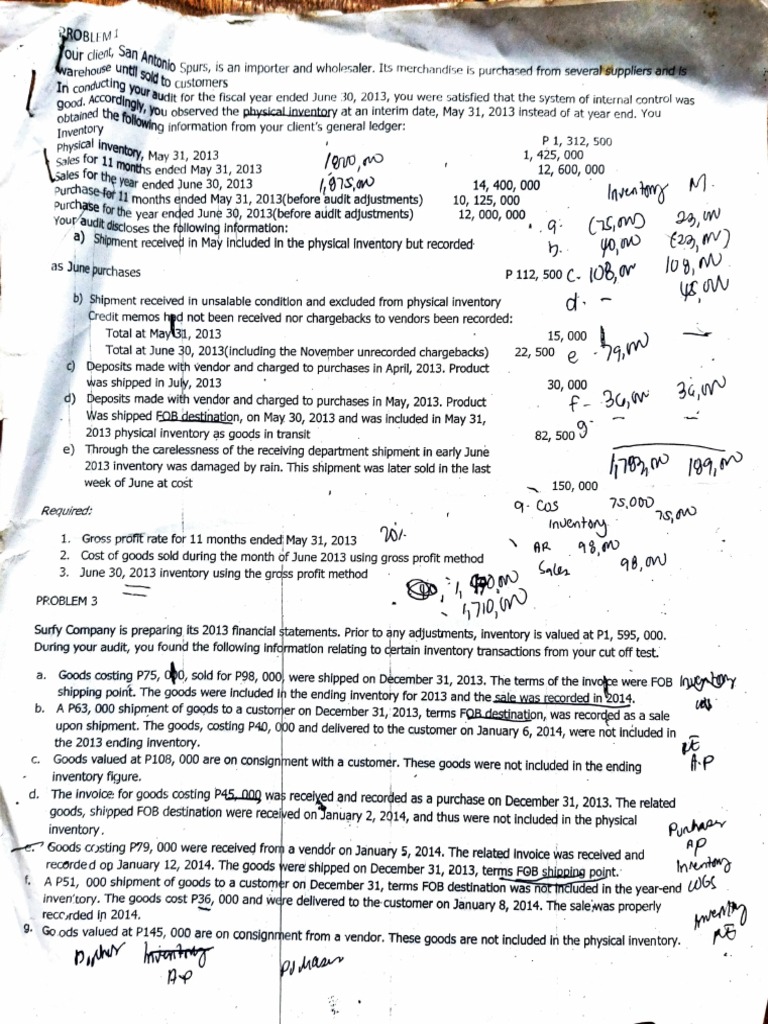 PROBLEM 1
Your client, San Antonio Spurs, is an importer and wholesaler. Its merchandise is purchased from several suppliers and is
warehouse until sold to customers
In conducting your audit for the fiscal year ended June 30, 2013, you were satisfied that the system of internal control was
good. Accordingly, you observed the physical inventory at an interim date, May 31, 2013 instead of at year end. You
obtained the following information from your client's general ledger:
Inventory P 1, 312, 500
Physical inventory, May 31, 2013 1, 425, 000
Sales for 11 months ended May 31, 2013 1800,000 12, 600, 000
Sales for the year ended June 30, 2013 1,875,000 14, 400, 000
Purchase for 11 months ended May 31, 2013(before audit adjustments) 10, 125, 000
Purchase for the year ended June 30, 2013(before audit adjustments) 12, 000, 000
Inventory M.
Your audit discloses the following information:
a. (75,000) 23,000
a) Shipment received in May included in the physical inventory but recorded
b. 40,000 (23,000)
as June purchases P 112, 500
c. 108,000 108,000
d. - 45,000
b) Shipment received in unsalable condition and excluded from physical inventory
Credit memos had not been received nor chargebacks to vendors been recorded:
Total at May 31, 2013 15,000
Total at June 30, 2013(including the November unrecorded chargebacks) 22, 500
e 79,000 -
c) Deposits made with vendor and charged to purchases in April, 2013. Product
was shipped in July, 2013 30, 000
f- 36,000 36,000
d) Deposits made with vendor and charged to purchases in May, 2013. Product
Was shipped FOB destination, on May 30, 2013 and was included in May 31,
2013 physical inventory as goods in transit 82, 500
g - -
e) Through the carelessness of the receiving department shipment in early June
2013 inventory was damaged by rain. This shipment was later sold in the last
week of June at cost 150, 000
1,783,000 189,000
Required:
a. COS 75,000
Inventory 75,000
1. Gross profit rate for 11 months ended May 31, 2013 20%
AR 98,000
2. Cost of goods sold during the month of June 2013 using gross profit method
Sales 98,000
3. June 30, 2013 inventory using the gross profit method
1,710,000
PROBLEM 3
Surfy Company is preparing its 2013 financial statements. Prior to any adjustments, inventory is valued at P1, 595, 000.
During your audit, you found the following information relating to certain inventory transactions from your cut off test.
a. Goods costing P75, 000, sold for P98, 000, were shipped on December 31, 2013. The terms of the invoice were FOB
shipping point. The goods were included in the ending inventory for 2013 and the sale was recorded in 2014.
Inventory
b. A P63, 000 shipment of goods to a customer on December 31, 2013, terms FOB destination, was recorded as a sale
upon shipment. The goods, costing P40, 000 and delivered to the customer on January 6, 2014, were not included in
the 2013 ending inventory.
RE
A.P
c. Goods valued at P108, 000 are on consignment with a customer. These goods were not included in the ending
inventory figure.
d. The invoice for goods costing P45, 000 was received and recorded as a purchase on December 31, 2013. The related
goods, shipped FOB destination were received on January 2, 2014, and thus were not included in the physical
inventory.
Purchases
AP
e. Goods costing P79, 000 were received from a vendor on January 5, 2014. The related invoice was received and
recorded on January 12, 2014. The goods were shipped on December 31, 2013, terms FOB shipping point.
Inventory
f. A P51, 000 shipment of goods to a customer on December 31, terms FOB destination was not included in the year-end
COGS
inventory. The goods cost P36, 000 and were delivered to the customer on January 8, 2014. The sale was properly
recorded in 2014.
Inventory
RE
g. Goods valued at P145, 000 are on consignment from a vendor. These goods are not included in the physical inventory.
Inventory
AP
Purchases